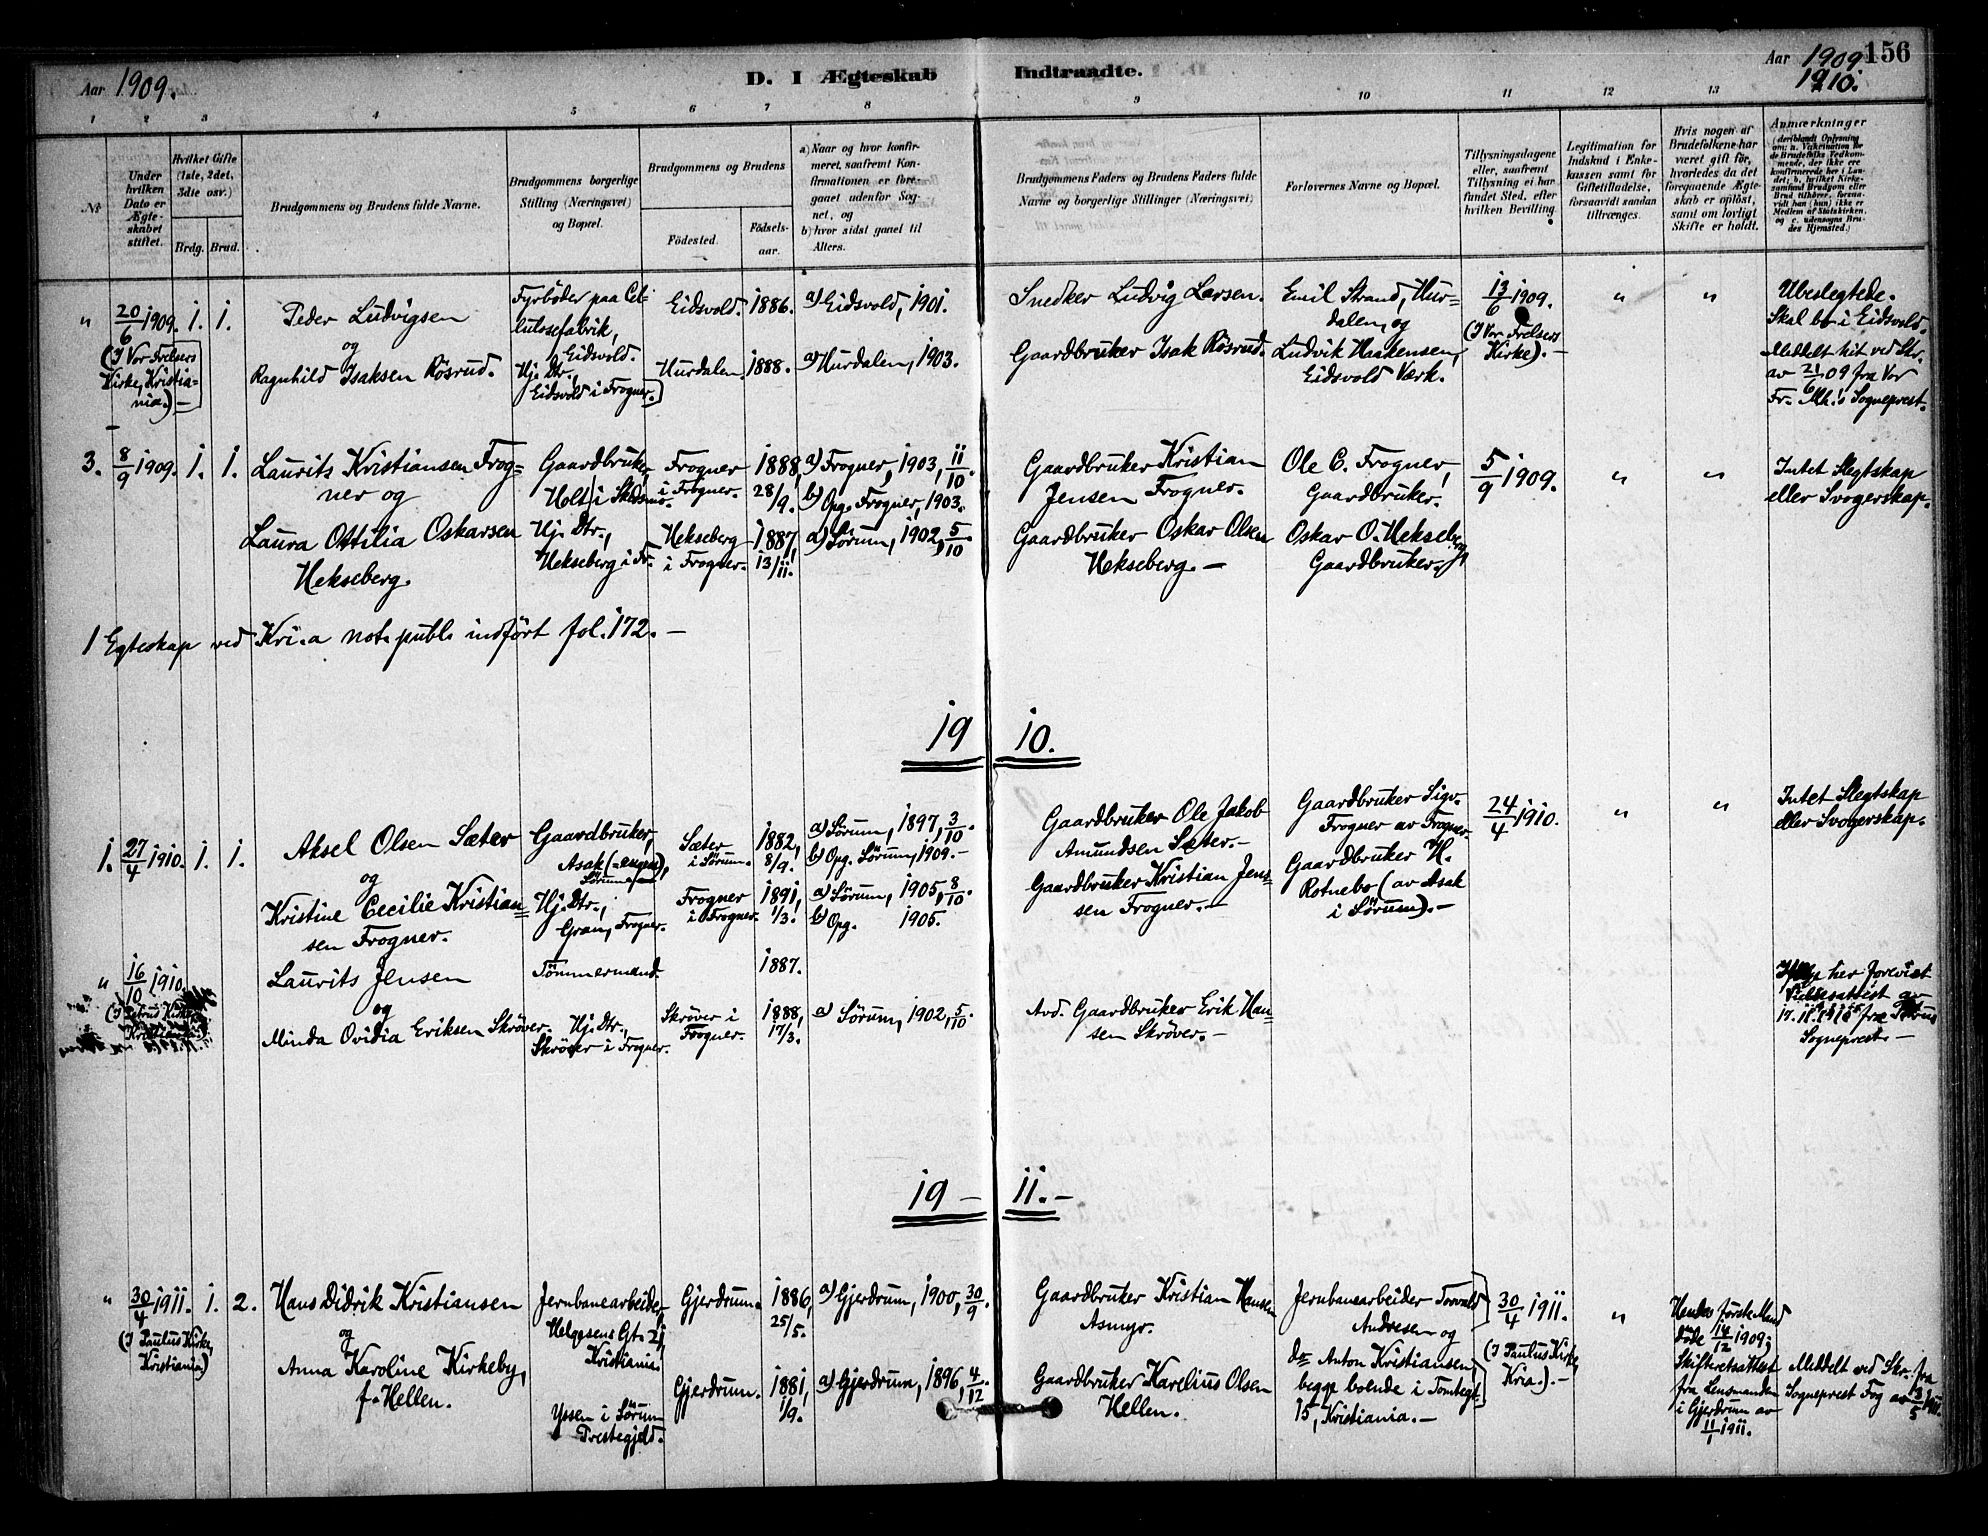 Aar 1909.
D. I Ægteskab
Indtraadte.
Aar 1909 156
1910.
1 2 3 4 5 6 7 8 9 10 11 12 13
№
Under hvilken Dato er Ægteskabet stiftet.
Hvilket Gifte (1ste, 2det, 3die osv.)
Brdg. Brud.
Brudgommens og Brudens fulde Navne.
Brudgommens borgerlige Stilling (Næringsvei) og Bopæl.
Brudgommens og Brudens
Fødested.
Fødselsaar.
a) Naar og hvor konfirmeret, saafremt Konfirmationen er foregaaet udenfor Sognet, og
b) hvor sidst gaaet til Alters.
Brudgommens Faders og Brudens Faders fulde Navne og borgerlige Stillinger (Næringsvei)
Forlovernes Navne og Bopæl.
Tillysningsdagene eller, saafremt Tillysning ei har fundet Sted, efter hvilken Bevilling.
Legitimation for Indskud i Enkekassen samt for Giftetilladelse, forsaavidt saadan tiltrænges.
Hvis nogen af Brudefolkene har været gift før, hvorledes da det foregaaende Ægteskab er opløst, samt om lovligt Skifte er holdt.
Anmærkninger
(deriblandt Oplysning om: a. Vakcination for de Brudefolks Vedkommende, der ikke ere konfirmerede her i Landet; b. hvilket Kirkesamfund Brudgom eller Brud tilhører, forsaavidt han (hun) ikke er Medlem af Statskirken, og c. udensogns Brudes Hjemsted.)
" 20/6 1909. 1. 1.
(I Vor Frelsers Kirke, Kristiania.) —
Peder Ludvigsen
og
Ragnhild Isaksen Rösrud.
Fyrböder paa Cellulosefabrik, Eidsvold.
Hj. Dtr., Eidsvold i Frogner.
Eidsvold. 1886. a) Eidsvold, 1901.
Hurdalen. 1888. a) Hurdalen, 1903.
Snedker Ludvig Larsen.
Gaardbruker Isak Rösrud.
Emil Strand, Hurdalen, og
Ludvik Haakensen, Eidsvold Værk.
13/6 1909.
(I Vor Frelsers Kirke). —
" "
Ubeslegtede.
Skal bo i Eidsvold.
Meddelt hit ved Skr. av 21/6 09 fra Vor Fr. Mh.'s Sogneprest.
3. 8/9 1909. 1. 1.
Laurits Kristiansen Frogner og
Laura Ottilia Oskarsen Hekseberg.
Gaardbruker, Holt i Skedsmo.
Hj. Dtr., Hekseberg i Fr.
Frogner i Frogner. 1888, 28/9. a) Frogner, 1903, 11/10.
b) Opg. Frogner, 1903.
Hekseberg i Frogner. 1887, 13/11. a) Sörum, 1902, 5/10.
Gaardbruker Kristian Jensen Frogner.
Gaardbruker Oskar Olsen Hekseberg. —
Ole C. Frogner, Gaardbruker.
Oskar O. Hekseberg, Gaardbruker.
5/9 1909.
" "
Intet Slegtskap eller Svogerskap.
1 Egteskap ved Kri.a not. publ. indfört fol. 172. —
19 10.
1. 27/4 1910. 1. 1.
Aksel Olsen Sæter
og
Kristine Cecilie Kristiansen Frogner.
Gaardbruker, Asak (-engen), Sörum
Hj. Dtr., Gran, Frogner.
Sæter i Sörum. 1882, 8/9. a) Sörum, 1897, 3/10.
b) Opg. Sörum, 1909. —
Frogner i Frogner. 1891, 1/3. a) Sörum, 1905, 8/10.
b) Opg. 1905.
Gaardbruker Ole Jakob Amundsen Sæter. —
Gaardbruker Kristian Jensen Frogner. —
Gaardbruker Sigv. Frogner av Frogner.
Gaardbruker H. Rotnebo (av Asak i Sörum). —
24/4 1910.
" "
Intet Slegtskap eller Svogerskap.
" 16/10 1910.
(I Petrus Kirke Kristiania)
Laurits Jensen
og
Minda Ovidia Eriksen Skröver.
Tömmermand.
Hj. Dtr., Skröver i Frogner.
1887.
Skröver i Frogner. 1888, 17/3. a) Sörum, 1902, 5/10.
Avd. Gaardbruker Erik Hansen Skröver. —
her forevist Vielsesattest av 17.11.1915 fra Petrus Sogneprest. —
19 — 11. —
" 30/4 1911. 1. 2.
(I Paulus Kirke, Kristiania)
Hans Didrik Kristiansen
og
Anna Karoline Kirkeby, f. Hellen.
Jernbanearbeider, Helgesens Gt. 21, Kristiania.
Yssen i Sörum Prestegjeld.
Gjerdrum. 1886, 25/5. a) Gjerdrum, 1900, 30/9.
Gjerdrum. 1881, 1/9. a) Gjerdrum, 1896, 4/12
Gaardbruker Kristian Hansen Asmyr.
Gaardbruker Karelius Olsen Hellen.
Jernbanearbeider Torvald Andresen og
do Anton Kristiansen, begge boende i Tomtegt. 15, Kristiania. —
30/4 1911.
(I Paulus Kirke Kria.). —
"
Hendes förste Mand döde 14/12 1909; Skifteretsattest fra Lensmanden i Gjerdrum av 11/1 1911.
Meddelt ved Skr. fra Sogneprest Fog av 13/5 1911.